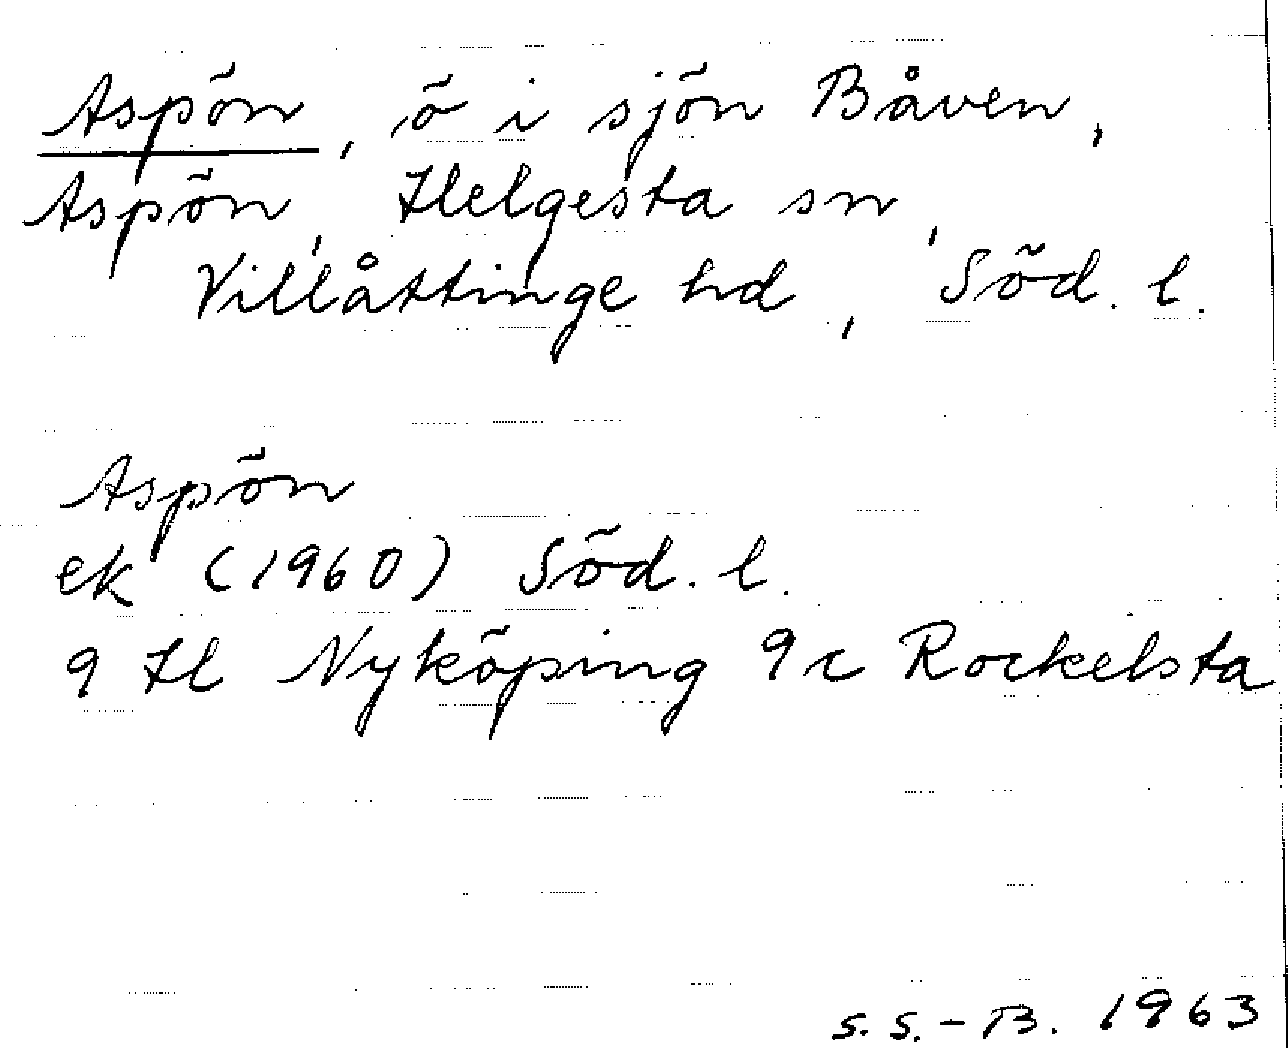 Aspön, ö i sjön Båven,
Aspön, Helgesta sn,
Villåttinge hd, Söd. l.
Aspön
ek (1960) Söd. l.
9 H Nyköping 9 c Rockelsta
S. S.-B. 1963